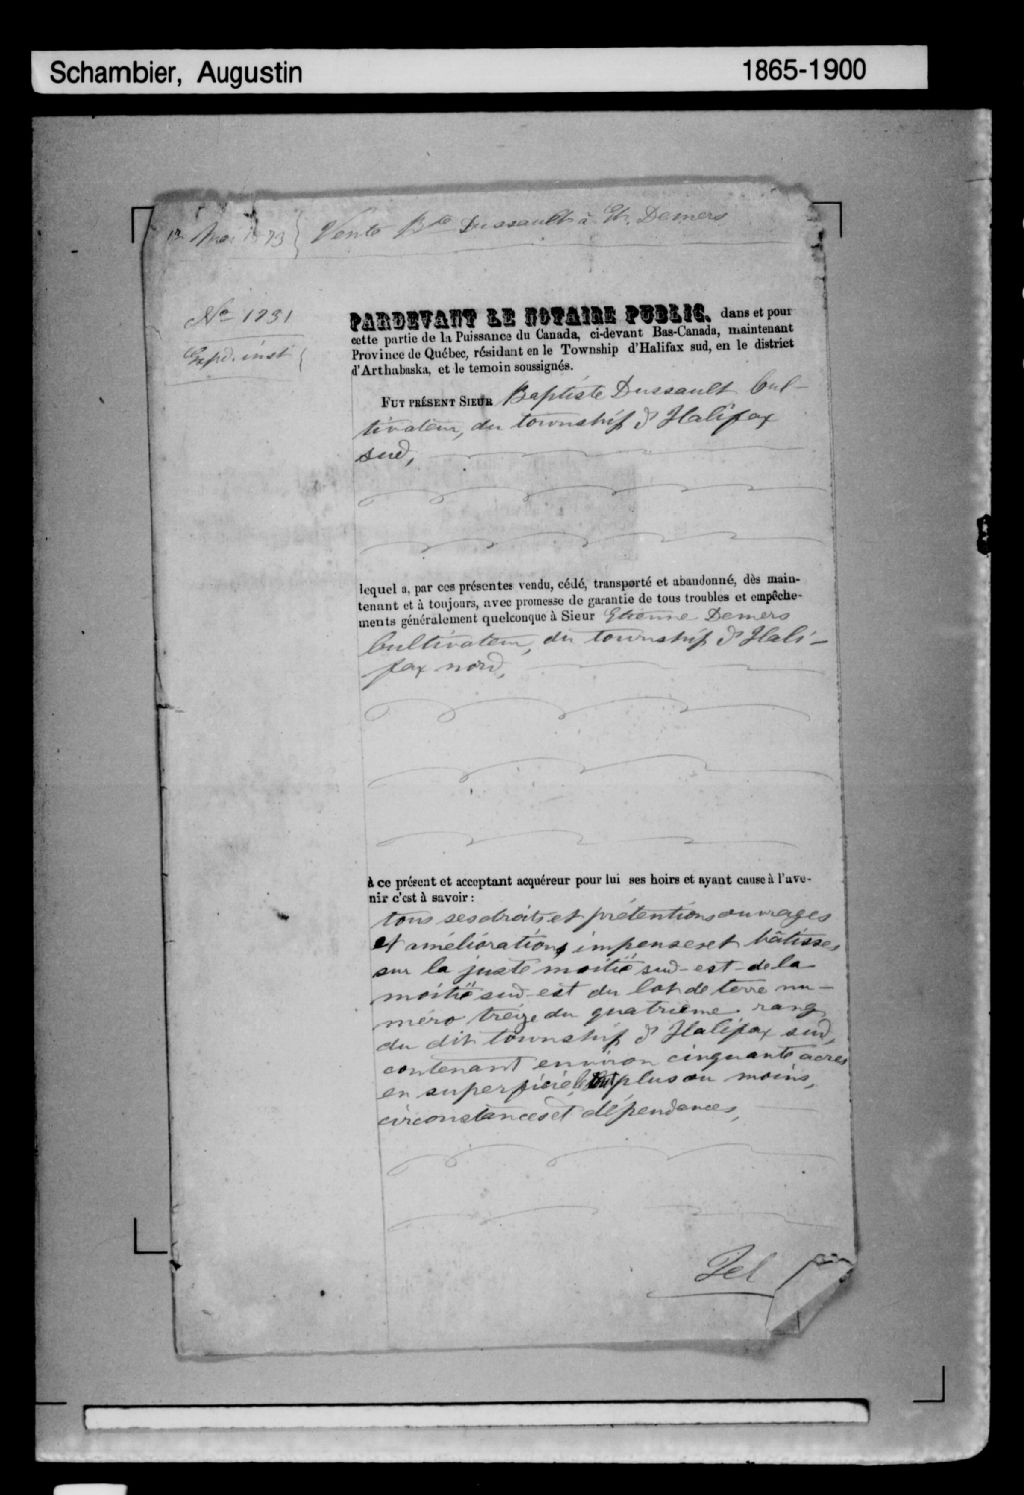 Schambier, Augustin 1865-1900
Mai 1873 Vente Bte Dussault à Et. Demers
No 1231
Expd. inst
PARDEVANT LE NOTAIRE PUBLIC. dans et pour
cette partie de la Puissance du Canada, ci-devant Bas-Canada, maintenant
Province de Québec, résidant en le Township d'Halifax sud, en le district
d'Arthabaska, et le temoin soussignés.
FUT PRÉSENT SIEUR Baptiste Dussault Cul-
tivateur, du township d'Halifax
sud,
lequel a, par ces présentes vendu, cédé, transporté et abandonné, dès main-
tenant et à toujours, avec promesse de garantie de tous troubles et empêche-
ments généralement quelconque à Sieur Etienne Demers
Cultivateur, du township d'Hali-
fax nord,
à ce présent et acceptant acquéreur pour lui ses hoirs et ayant cause à l'ave-
nir c'est à savoir :
tous ses droits et prétentions ouvrages
et améliorations impenses et bâtisses
sur la juste moitié sud-est de la
moitié sud-est du lot de terre nu-
méro treize du quatrième rang
du dit township d'Halifax sud,
contenant environ cinquante acres
en superficie plus ou moins,
circonstances et dépendances,
Tel